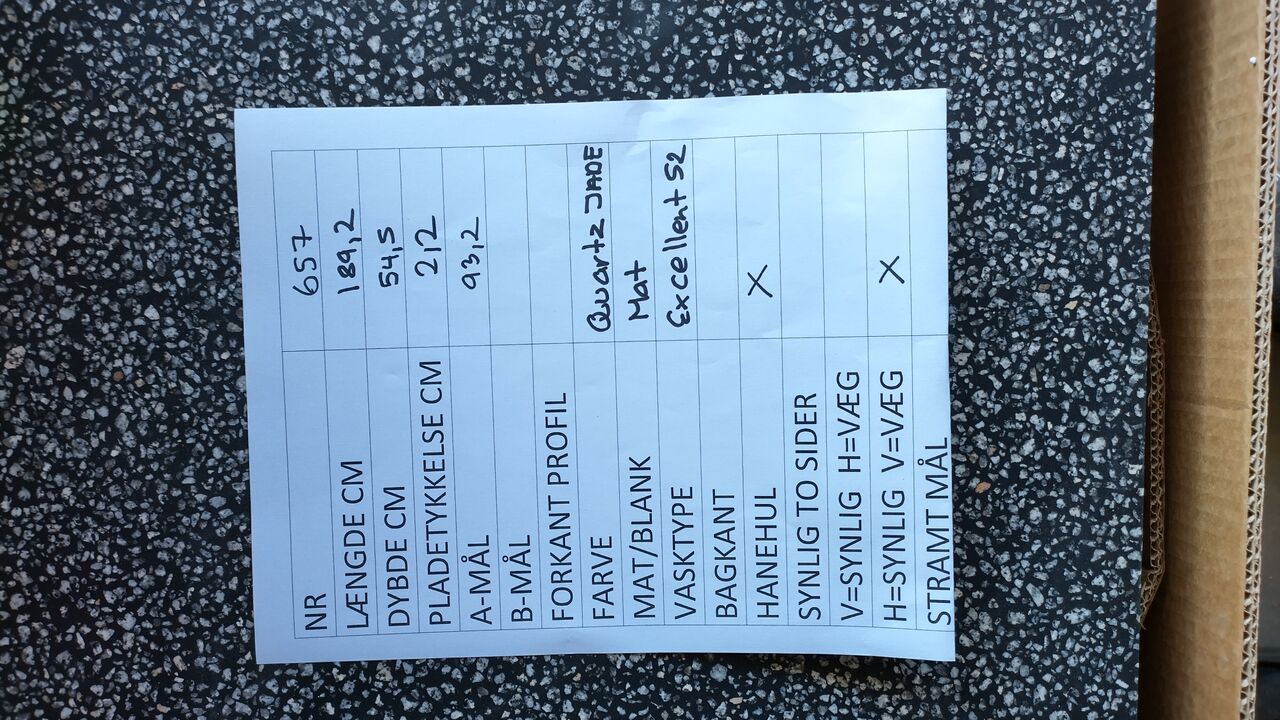 NR 657
LÆNGDE CM 189,2
DYBDE CM 54,5
PLADETYKKELSE CM 2,2
A-MÅL 93,2
B-MÅL
FORKANT PROFIL
FARVE Quartz JADE
MAT/BLANK Mat
VASKTYPE Excellent 52
BAGKANT
HANEHUL X
SYNLIG TO SIDER
V=SYNLIG H=VÆG
H=SYNLIG V=VÆG X
STRAMT MÅL